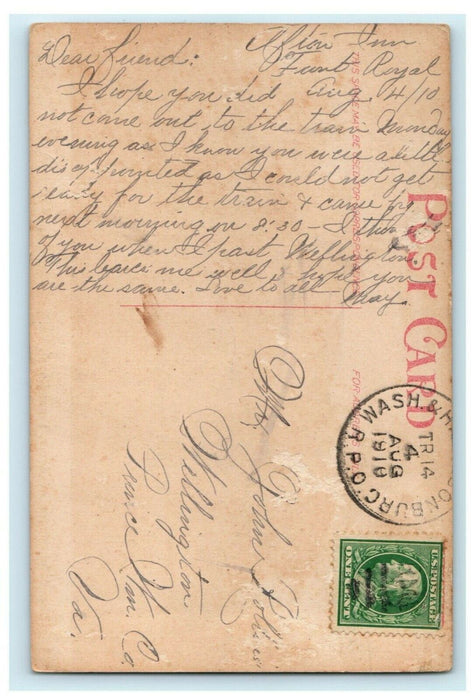 Afton Inn
Dear friend: Front Royal
Aug. 4/10
I hope you did
not come out to the train Monday
evening as I know you were a little
disappointed as I could not get
ready for the train & came
next morning on 8:30 - I
of you when I past Wellington.
This leaves me well & hope you
are the same. Love to all May.
POST CARD
THIS SIDE MAY BE USED FOR CORRESPONDENCE
FOR ADDRESS
WASH. &
ONBURG R.P.O.
TR 14
4
AUG
1910
U.S. POSTAGE
ONE CENT
Mr John
Wellington
Prince Wm. Co.
Va.